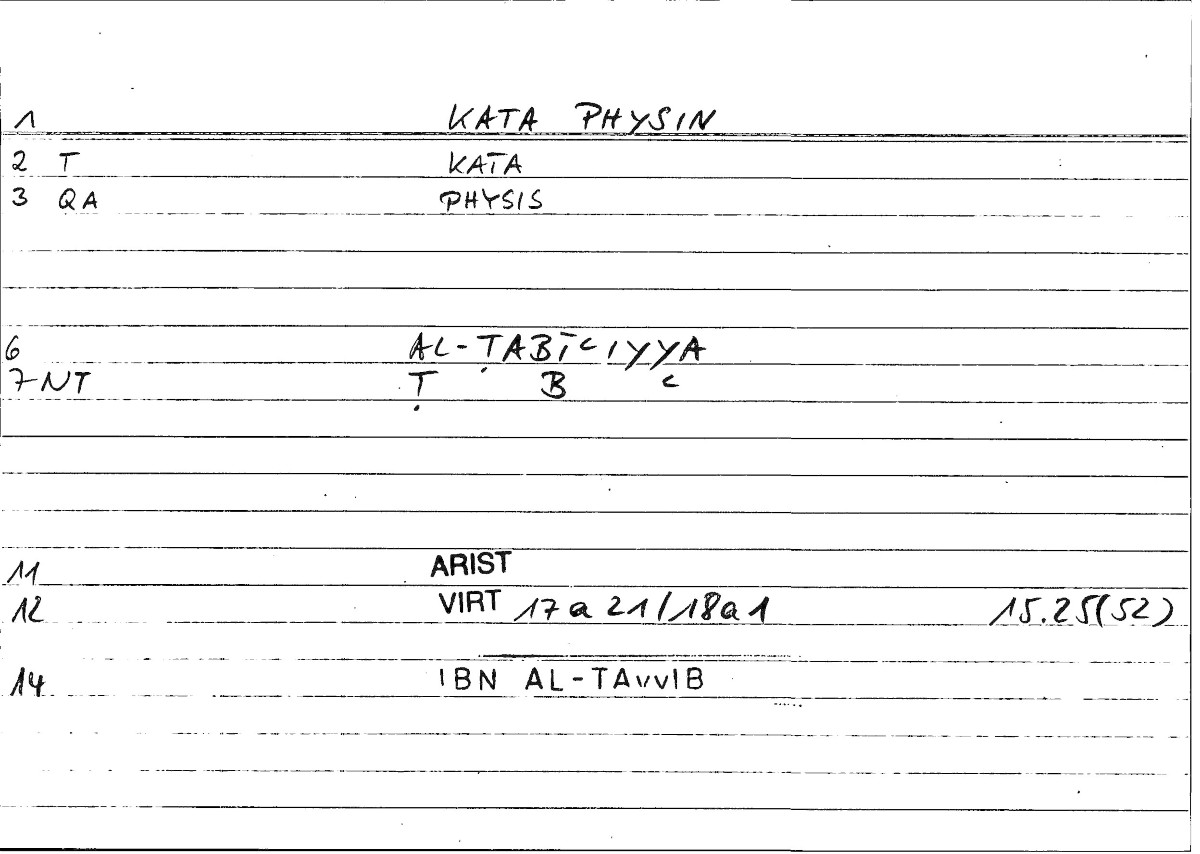 1 KATA PHYSIN
2 T KATA
3 QA PHYSIS
6 AL-ṬABĪcIYYA
7 NT Ṭ B c
11 ARIST
12 VIRT 17a21/18a1 15.25(52)
14 IBN AL-TAvvIB